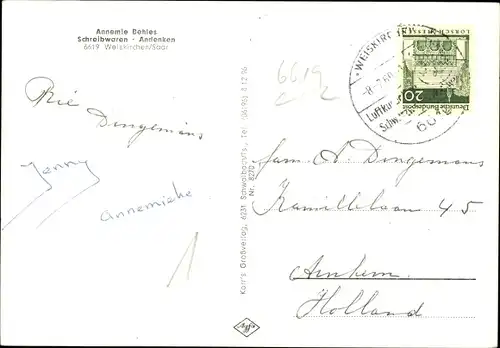 Annemie Dahles
Schreibwaren - Andenken
6619 Weiskirchen/Saar
Rie Dingemans
Jenny
Annemieke
Korr's Großverlag, 6231 Schwalbach/Ts., Tel. (06196) 8 12 76
Nr. 8270
6619
WEISKIRCHEN
Luftkurort
LORSCH HESSEN
Deutsche Bundespost
20
Fam A. Dingemans
Kamillelaan 45
Arnhem.
Holland